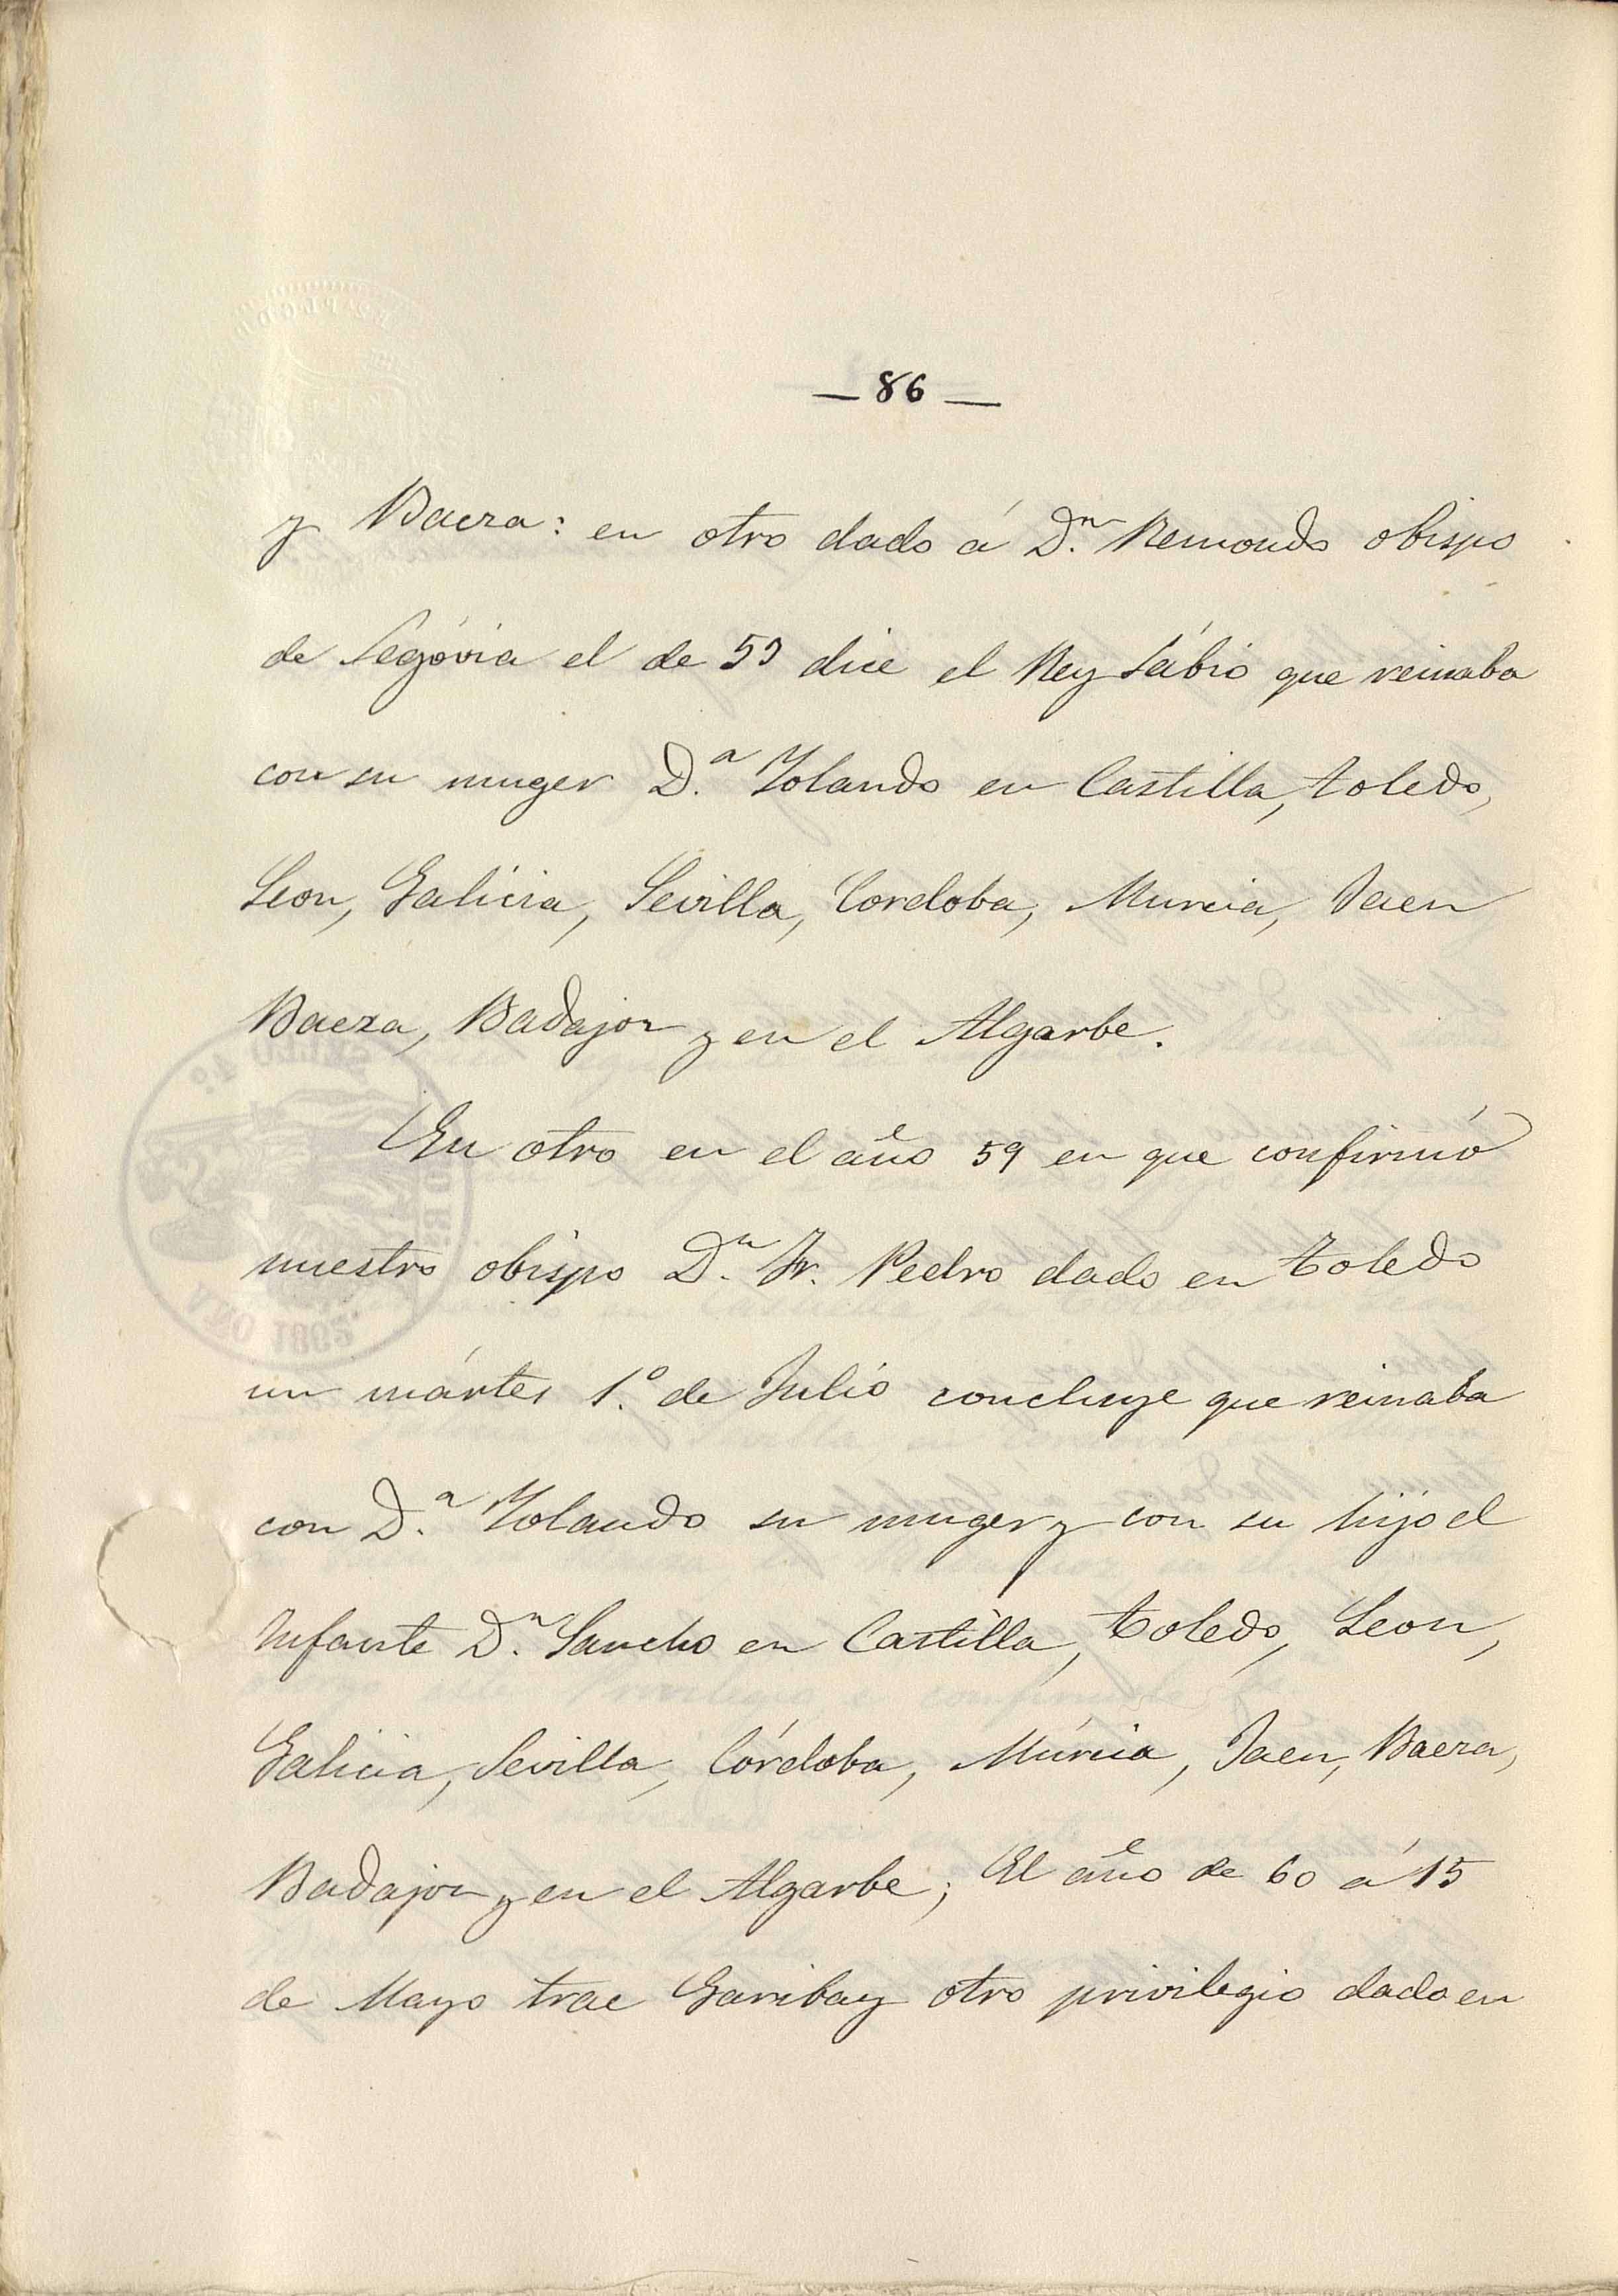 — 86 —
y Baeza: en otro dado á D.n Remondo obispo
de Segóvia el de 59 dice el Rey Sábio que reinaba
con su muger D.a Yolando en Castilla, toledo,
Leon, Galicia, Sevilla, Cordoba, Murcia, Jaen
Baeza, Badajoz y en el Algarbe.
En otro en el año 59 en que confirmó
nuestro obispo D.n Fr. Pedro dado en toledo
un mártes 1.º de Julio concluye que reinaba
con D.a Yolando su muger y con su hijo el
Infante D.n Sancho en Castilla, toledo, Leon,
Galicia, Sevilla, Córdoba, Múrcia, Jaen, Baeza,
Badajoz y en el Algarbe; El año de 60 á 15
de Mayo trae Garibay otro privilegio dado en